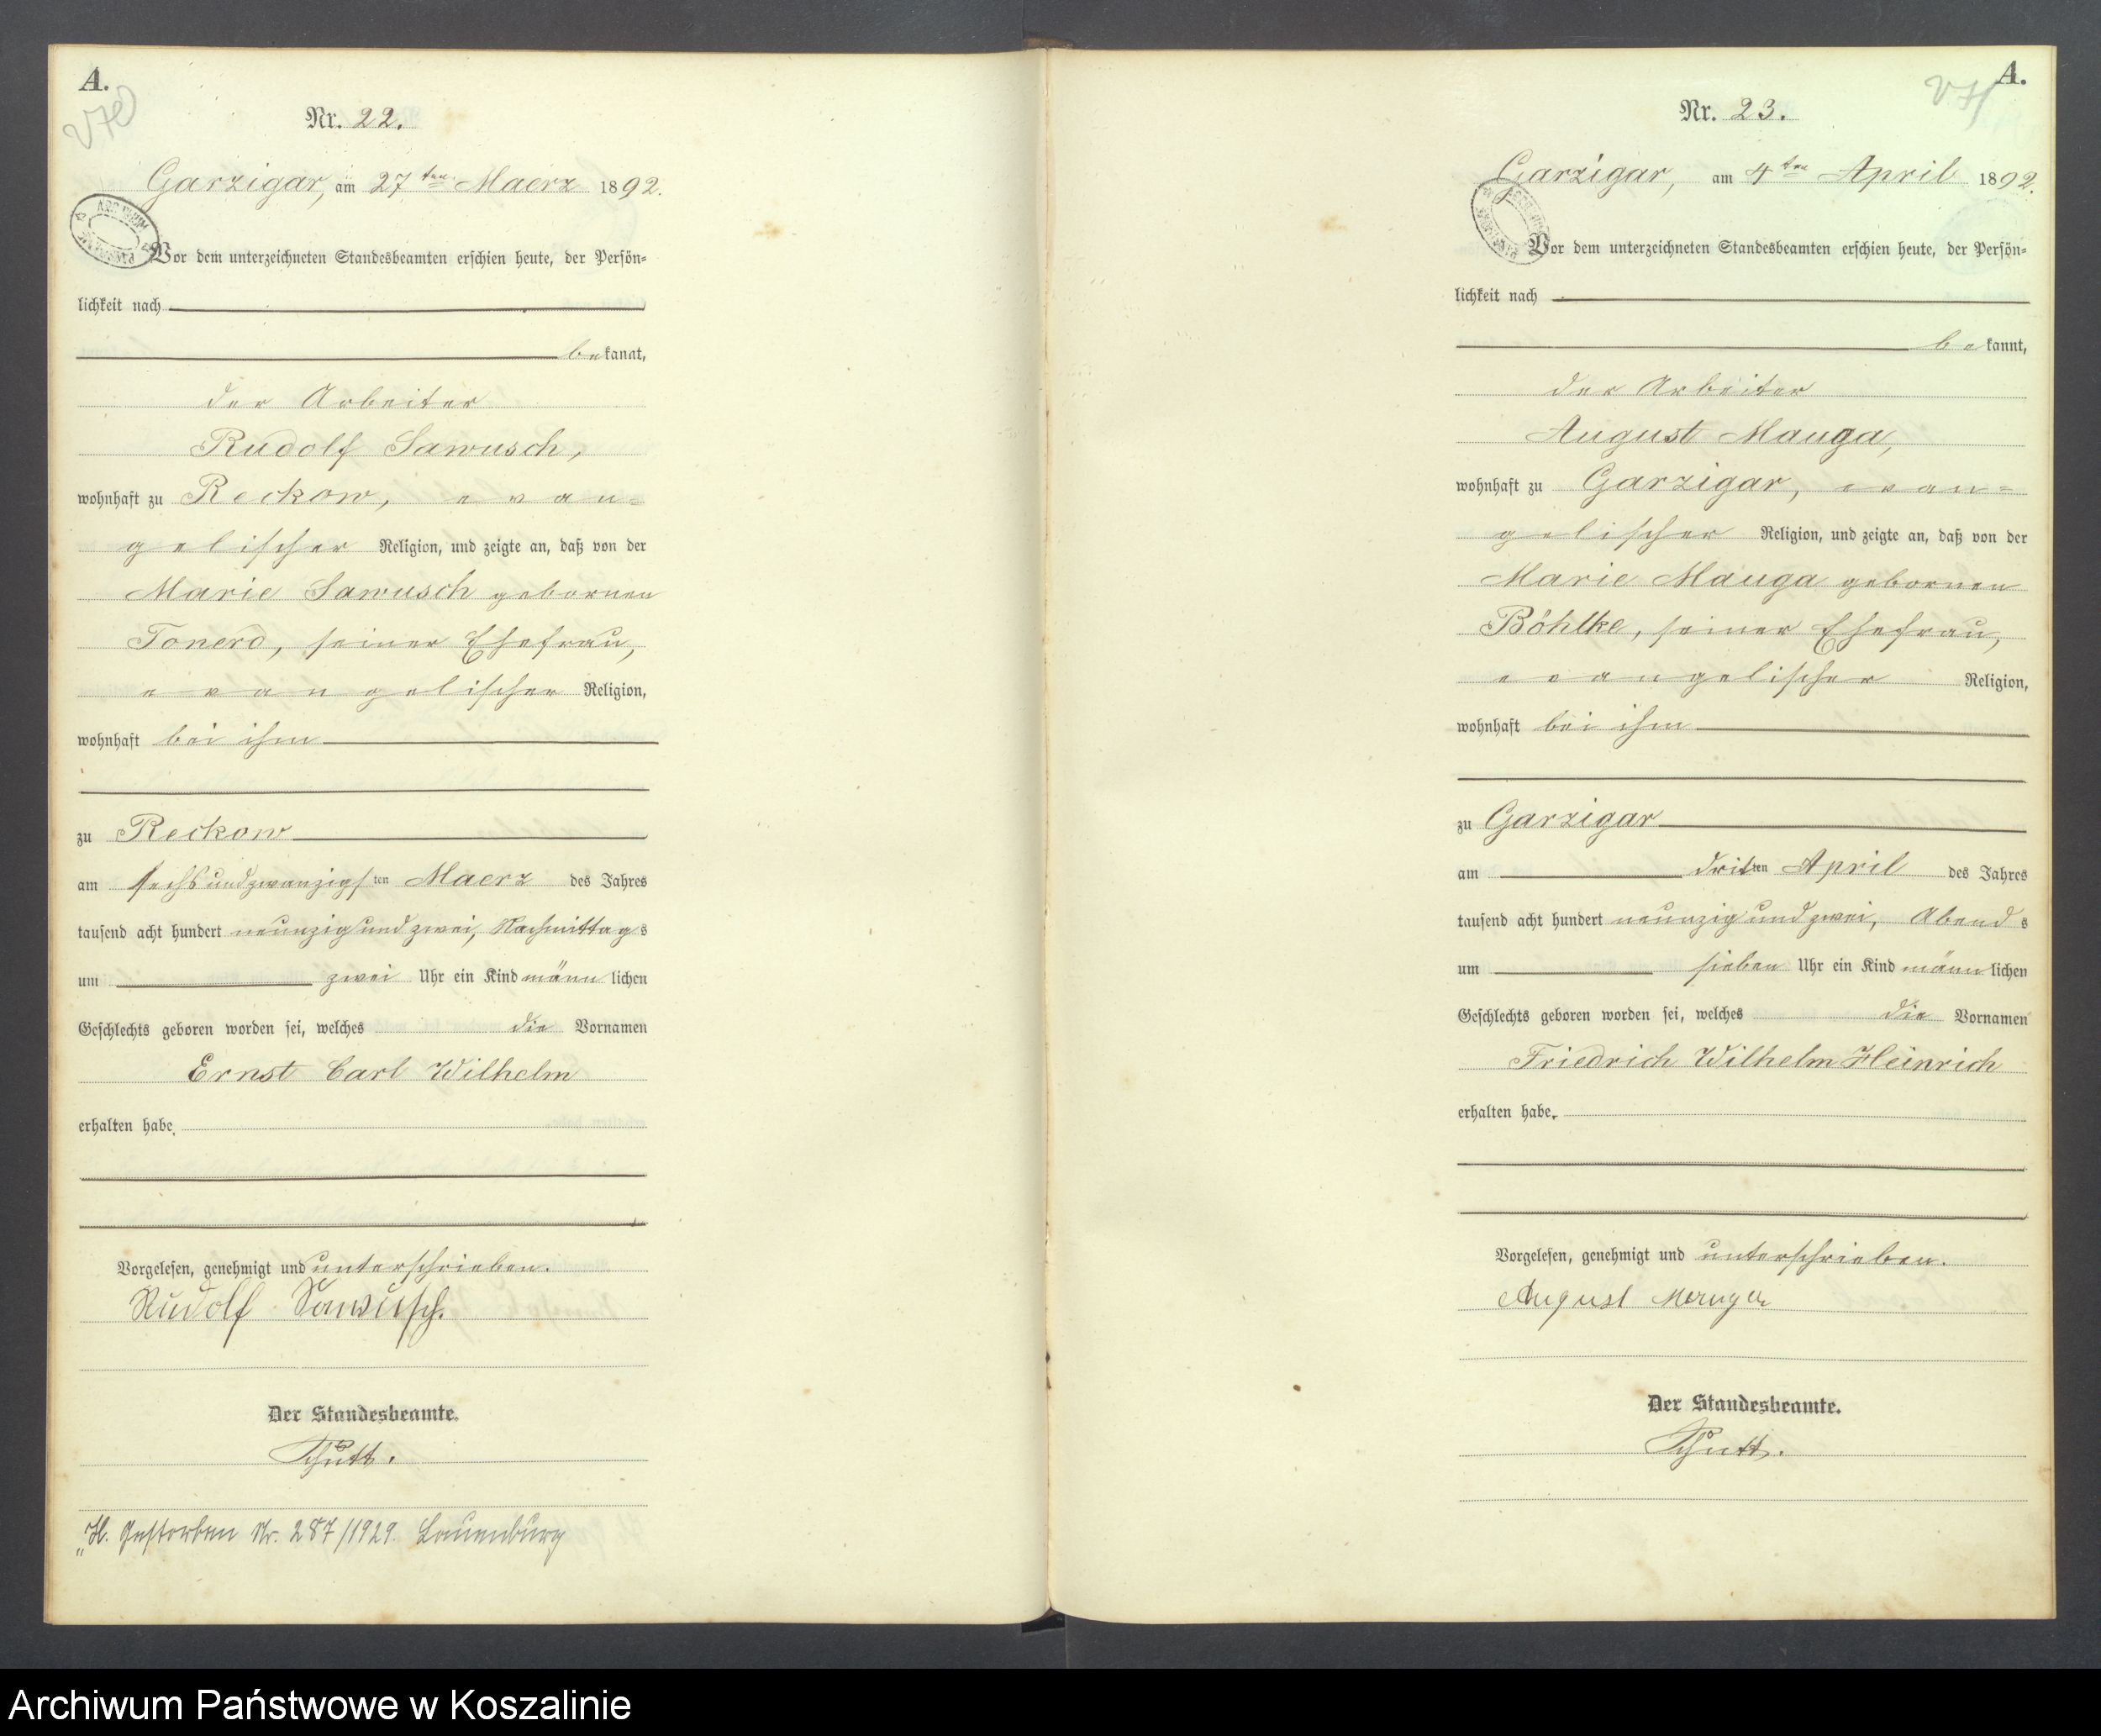 A.
Nr. 22.
Garzigar, am 27ten Maerz 1892.
Vor dem unterzeichneten Standesbeamten erschien heute, der Persön=
lichkeit nach
bekannt,
der Arbeiter
Rudolf Sawusch,
wohnhaft zu Reckow, evan=
gelischer Religion, und zeigte an, daß von der
Marie Sawusch gebornen
Tonero, seiner Ehefrau,
evangelischer Religion,
wohnhaft bei ihm
zu Reckow
am sechsundzwanzigsten Maerz des Jahres
tausend acht hundert neunzig und zwei, Nachmittags
um zwei Uhr ein Kind männlichen
Geschlechts geboren worden sei, welches die Vornamen
Ernst Carl Wilhelm
erhalten habe.
Vorgelesen, genehmigt und unterschrieben.
Rudolf Sawusch.
Der Standesbeamte.
Schütt.
"H. Gestorben Nr. 287/1929. Lauenburg
A.
Nr. 23.
Garzigar, am 4ten April 1892.
Vor dem unterzeichneten Standesbeamten erschien heute, der Persön=
lichkeit nach
bekannt,
der Arbeiter
August Mauga,
wohnhaft zu Garzigar, evan=
gelischer Religion, und zeigte an, daß von der
Marie Mauga gebornen
Böhlke, seiner Ehefrau,
evangelischer Religion,
wohnhaft bei ihm
zu Garzigar
am dritten April des Jahres
tausend acht hundert neunzig und zwei, Abends
um sieben Uhr ein Kind männlichen
Geschlechts geboren worden sei, welches die Vornamen
Friedrich Wilhelm Heinrich
erhalten habe.
Vorgelesen, genehmigt und unterschrieben.
August Mauga
Der Standesbeamte.
Schütt.
Archiwum Państwowe w Koszalinie